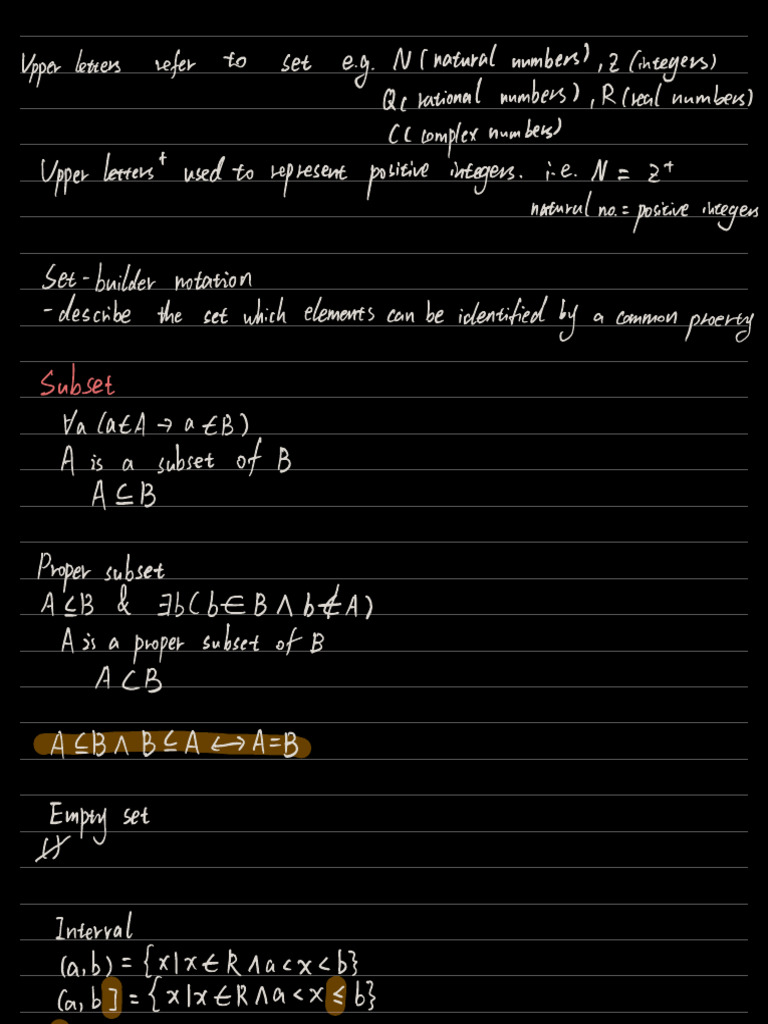 Upper letters refer to set e.g. N (natural numbers), Z (integers)
Q( rational numbers), R (real numbers)
C( complex numbers)
Upper letters⁺ used to represent positive integers. i.e. N = Z⁺
natural no. = positive integers
Set-builder notation
- describe the set which elements can be identified by a common proerty
Subset
∀a (a∈A → a∈B)
A is a subset of B
A ⊆ B
Proper subset
A⊆B & ∃b( b∈B ∧ b∉A)
A is a proper subset of B
A ⊂ B
A⊆B ∧ B⊆A ↔ A=B
Empty set
Interval
(a,b) = {x|x∈R ∧ a<x<b}
(a,b] = {x|x∈R ∧ a<x≤b}